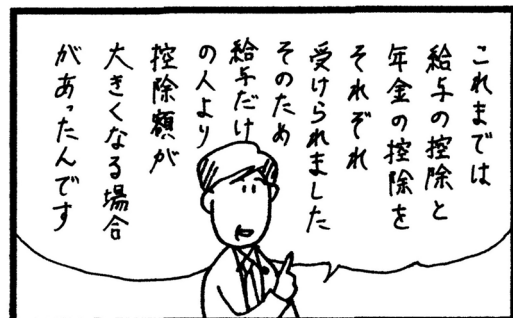 これまでは
給与の控除と
年金の控除を
それぞれ
受けられました
そのため
給与だけ
の人より
控除額が
大きくなる場合
があったんです